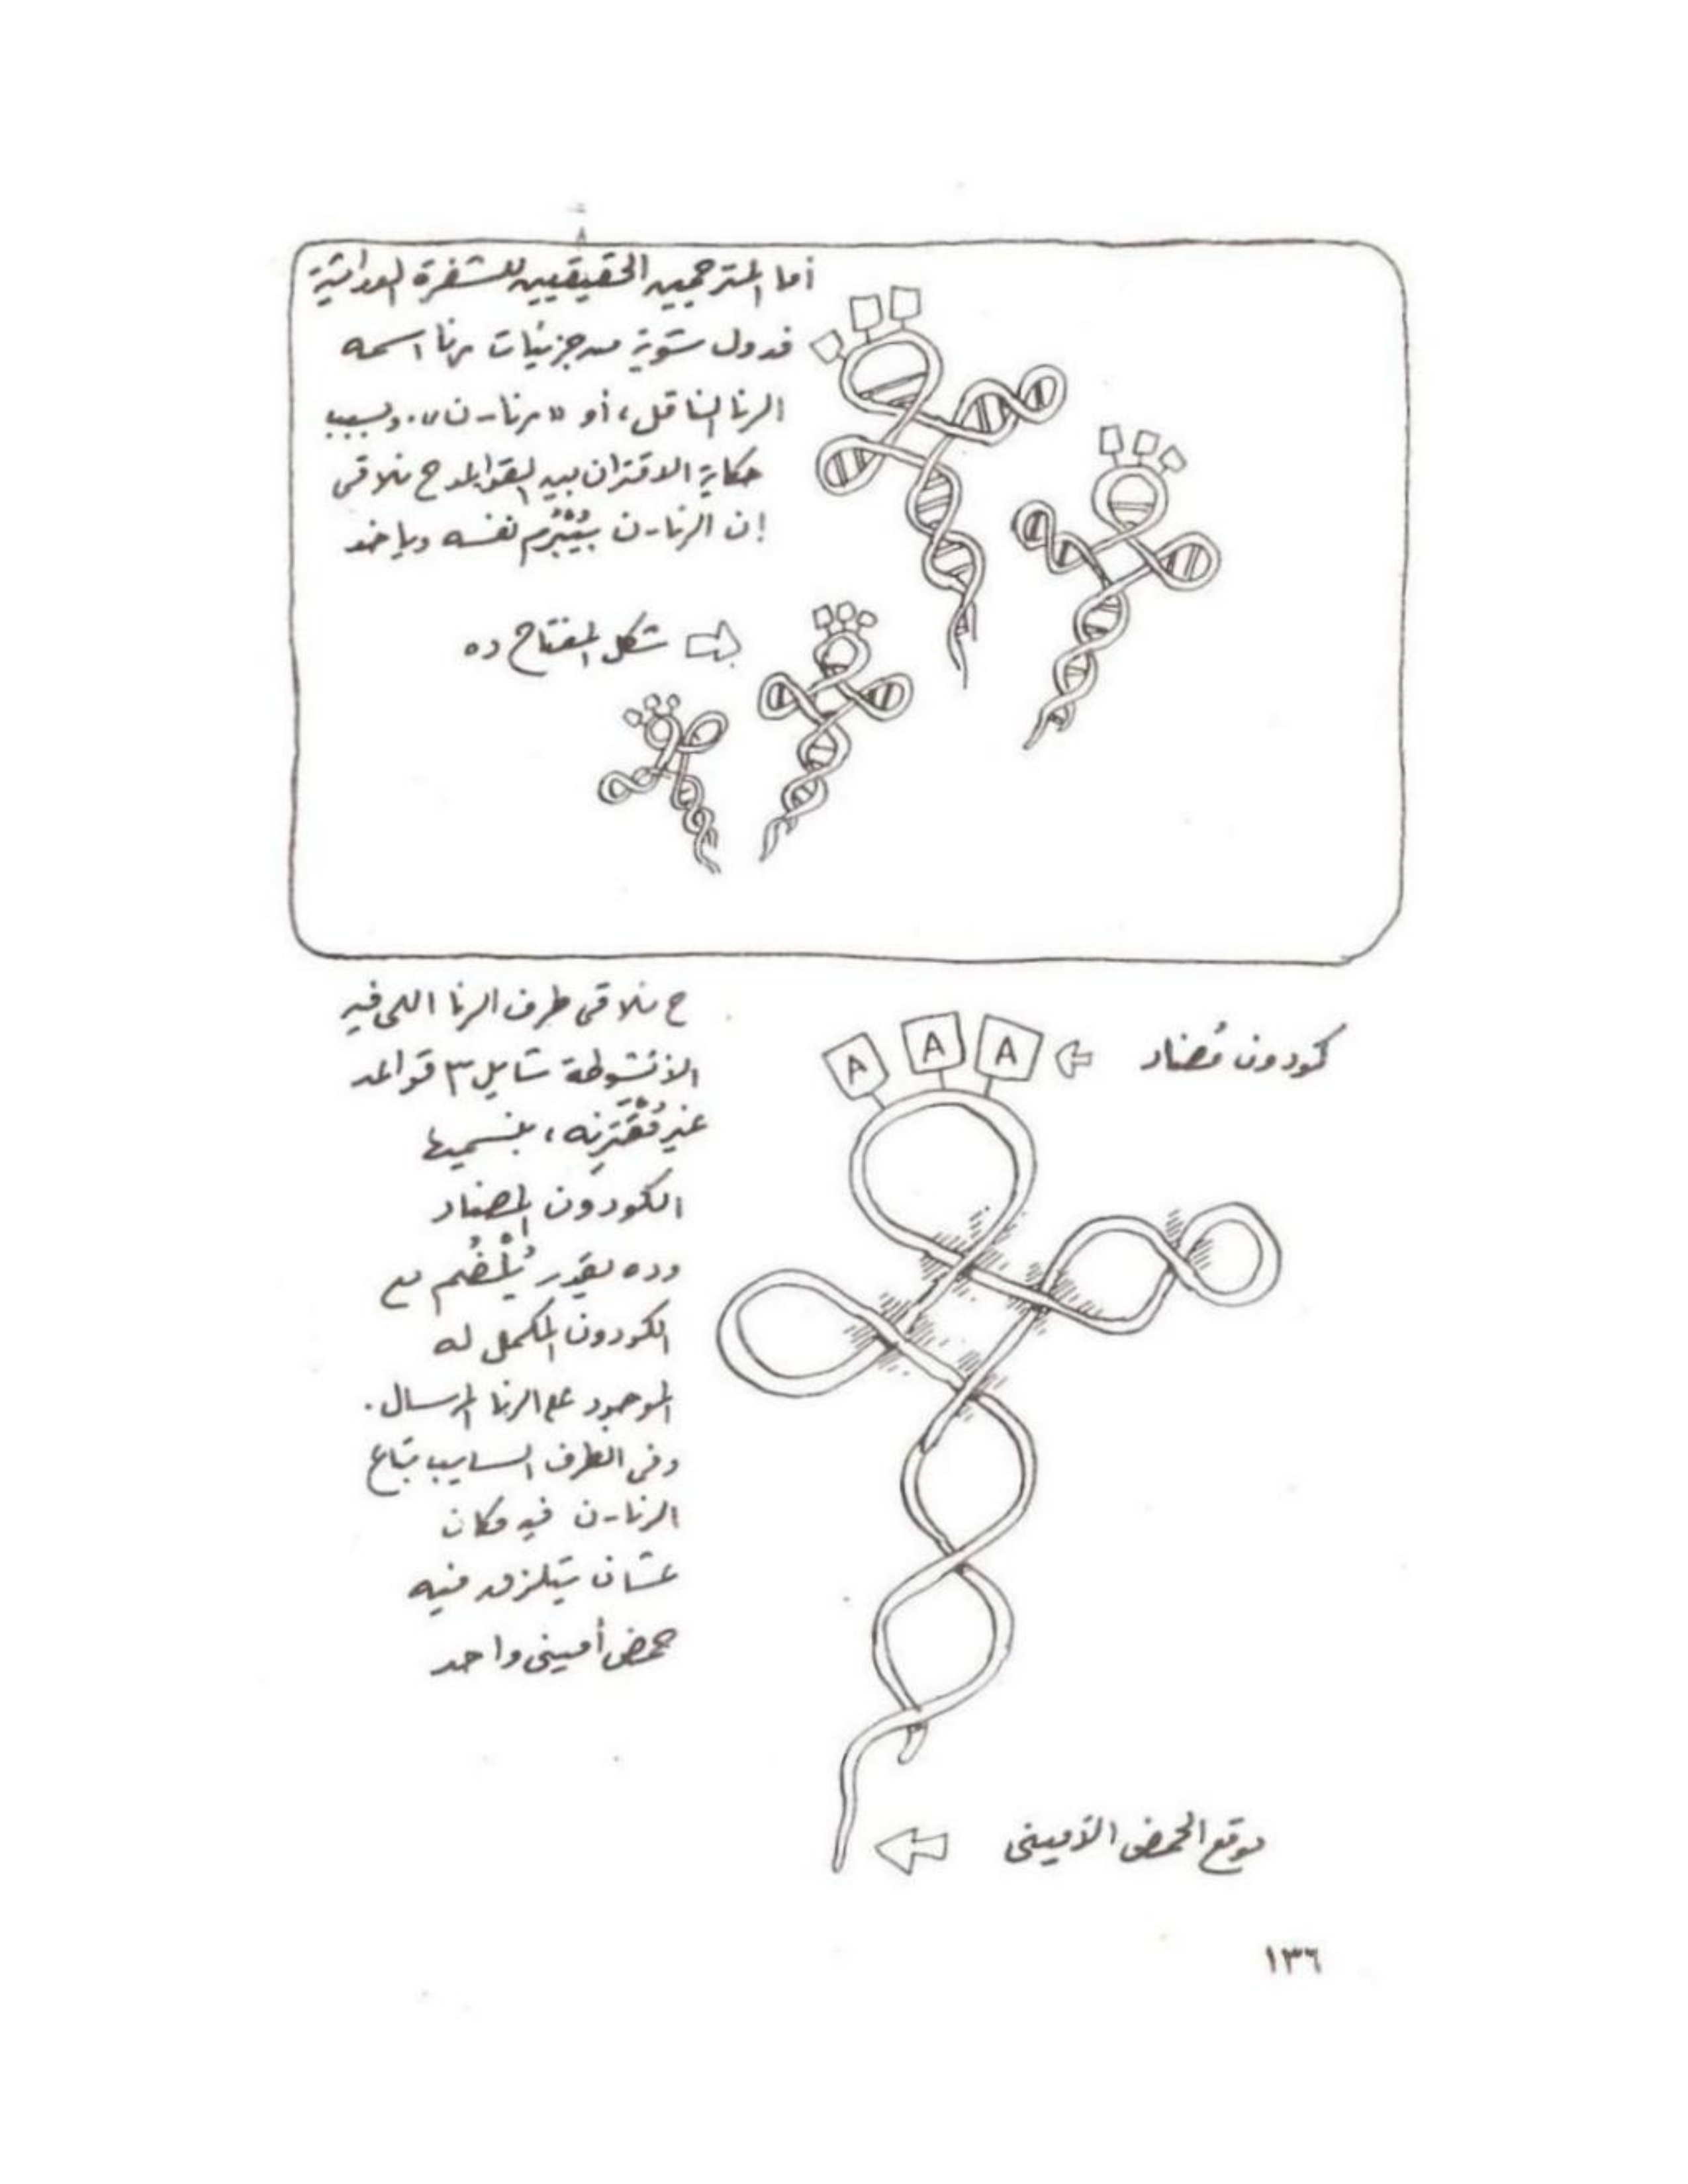 أما المترجمين الحقيقيين للشفرة الوراثية
فدول شوية من جزئيات رنا اسمه
الرنا الناقل، أو «رنا-ن». وبسبب
حكاية الاقتران بين القواعد ح نلاقى
إن الرنا-ن بيُبْرُم نفسه وياخد
شكل المفتاح ده
ح نلاقى طرف الرنا اللى فيه
الأنشوطة شايل ٣ قواعد
غير مُقْتَرِنه، بنسميها
الكودون المضاد
وده يقدر يُلْضُم مع
الكودون المكمل له
الموجود على الرنا المرسال.
وفى الطرف السايب بتاع
الرنا-ن فيه مكان
عشان يتلزق فيه
حمض أمينى واحد
كودون مُضاد
A A A
موقع الحمض الأمينى
١٣٦